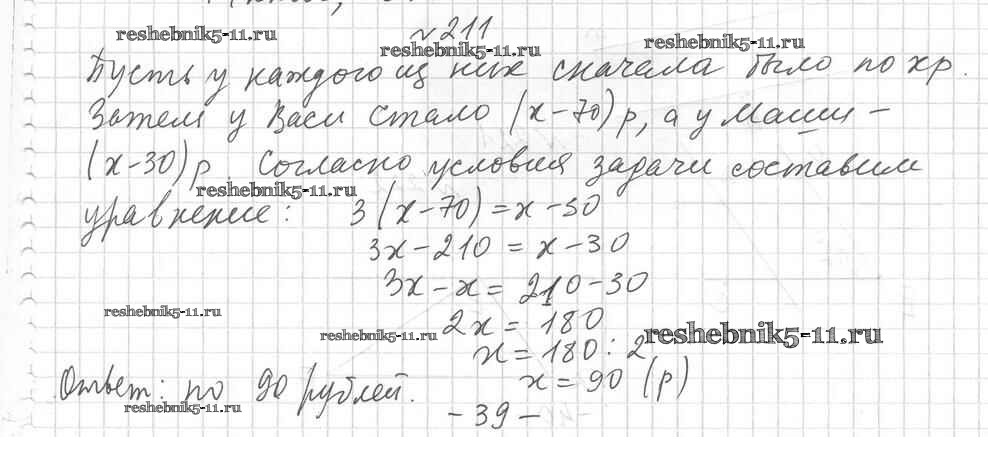 № 211
Пусть у каждого из них сначала было по x р.
Затем у Васи стало (x-70) р, а у Маши -
(x-30) р Согласно условия задачи составим
уравнение: 3(x-70)=x-30
3x-210=x-30
3x-x=210-30
2x=180
x=180:2
x=90 (р)
Ответ: по 90 рублей.
-39-
reshebnik5-11.ru
reshebnik5-11.ru
reshebnik5-11.ru
reshebnik5-11.ru
reshebnik5-11.ru
reshebnik5-11.ru
reshebnik5-11.ru
reshebnik5-11.ru